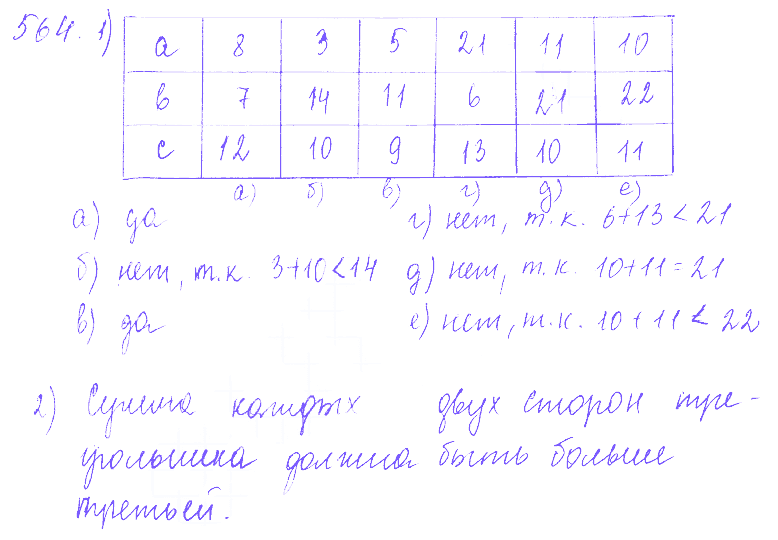 564. 1)
a 8 3 5 21 11 10
в 7 14 11 6 21 22
c 12 10 9 13 10 11
а) б) в) г) д) е)
а) да г) нет, т.к. 6+13<21
б) нет, т.к. 3+10<14 д) нет, т.к. 10+11=21
в) да е) нет, т.к. 10+11<22
2) Сумма каждых двух сторон тре-
угольника должна быть больше
третьей.